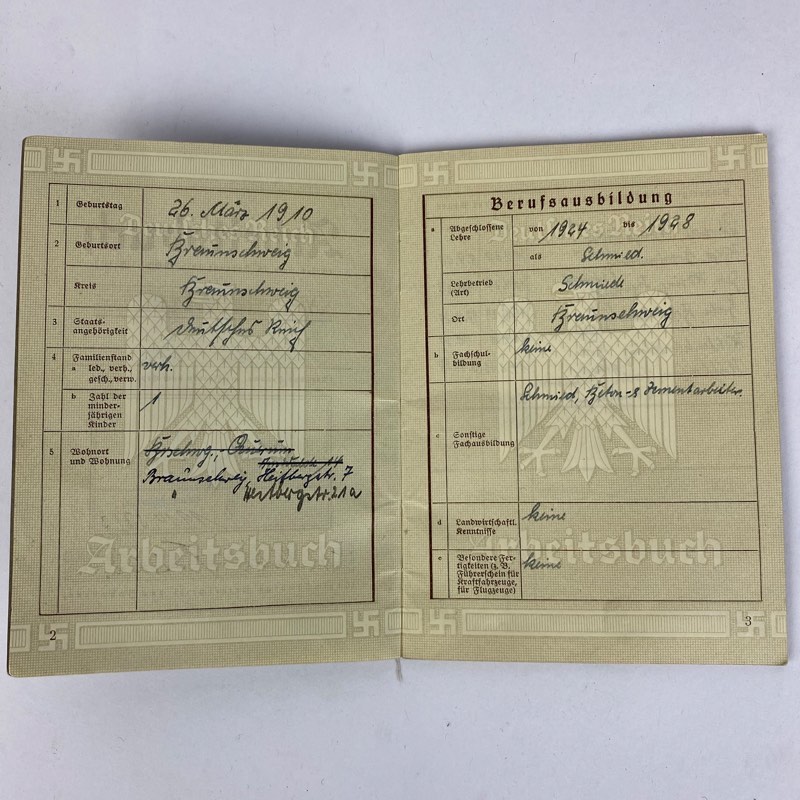 1 Geburtstag 26. März 1910
Deutsches Reich
2 Geburtsort Braunschweig
Kreis Braunschweig
3 Staats-
angehörigkeit Deutsches Reich
4 Familienstand
a led., verh., verh.
gesch., verw.
b Zahl der 1
minder-
jährigen
Kinder
5 Wohnort
und Wohnung
Braunschweig, 7
" 21a
Arbeitsbuch
2
Berufsausbildung
a Abgeschlossene von 1924 bis 1928
Lehre
als Schmied.
Lehrbetrieb Schmiede
(Art)
Ort Braunschweig
b Fachschul- keine
bildung
Schmied, Beton- & Zementarbeiter.
c Sonstige
Fachausbildung
d Landwirtschaftl. keine
Kenntnisse
Arbeitsbuch
e Besondere Fer- keine
tigkeiten (z. B.
Führerschein für
Kraftfahrzeuge,
für Flugzeuge)
3